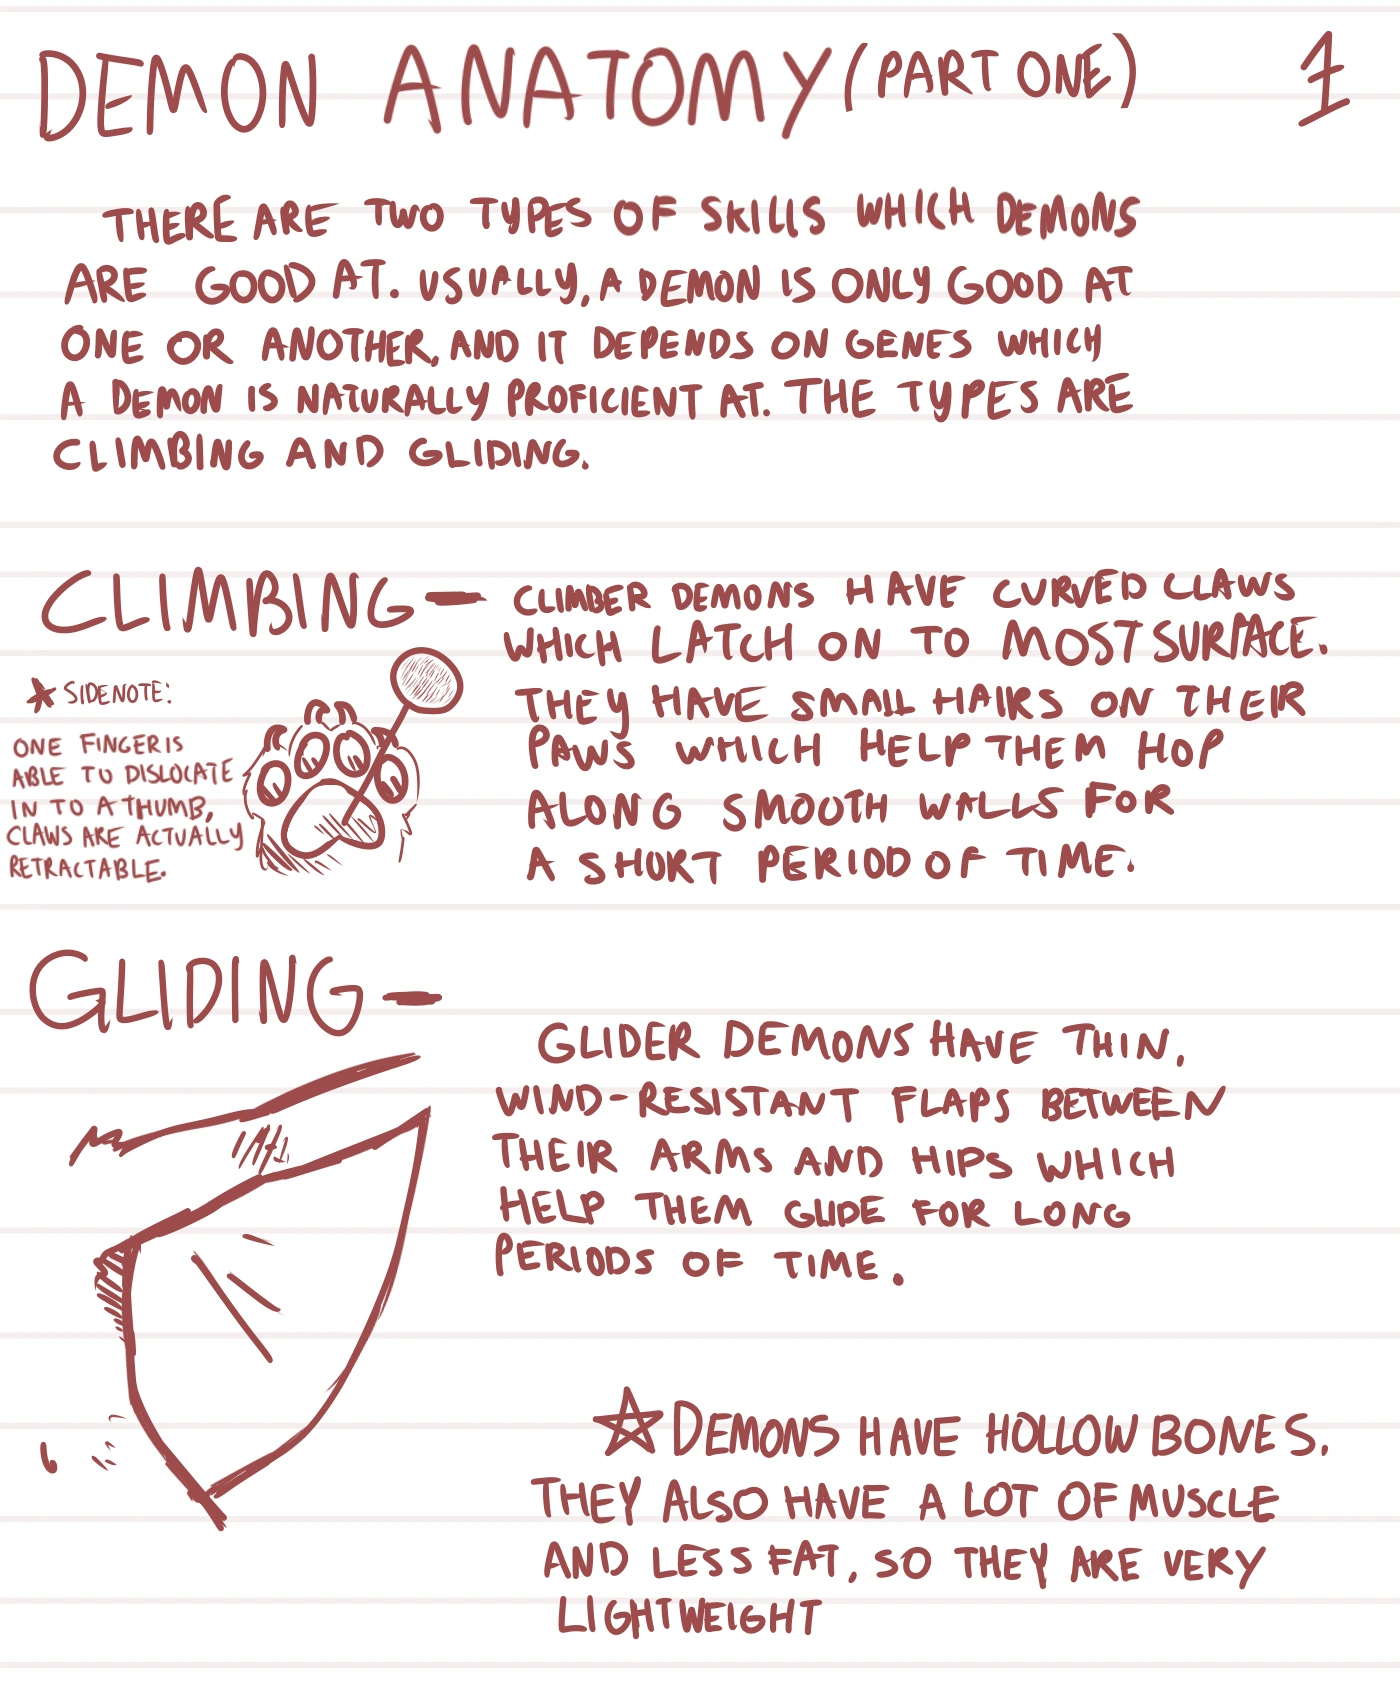 DEMON ANATOMY (PART ONE) 1
THERE ARE TWO TYPES OF SKILLS WHICH DEMONS
ARE GOOD AT. USUALLY, A DEMON IS ONLY GOOD AT
ONE OR ANOTHER, AND IT DEPENDS ON GENES WHICH
A DEMON IS NATURALLY PROFICIENT AT. THE TYPES ARE
CLIMBING AND GLIDING.
CLIMBING-
CLIMBER DEMONS HAVE CURVED CLAWS
WHICH LATCH ON TO MOST SURFACE.
THEY HAVE SMALL HAIRS ON THEIR
PAWS WHICH HELP THEM HOP
ALONG SMOOTH WALLS FOR
A SHORT PERIOD OF TIME.
★ SIDENOTE:
ONE FINGER IS
ABLE TO DISLOCATE
IN TO A THUMB,
CLAWS ARE ACTUALLY
RETRACTABLE.
GLIDING-
GLIDER DEMONS HAVE THIN,
WIND-RESISTANT FLAPS BETWEEN
THEIR ARMS AND HIPS WHICH
HELP THEM GLIDE FOR LONG
PERIODS OF TIME.
☆ DEMONS HAVE HOLLOW BONES.
THEY ALSO HAVE A LOT OF MUSCLE
AND LESS FAT, SO THEY ARE VERY
LIGHTWEIGHT